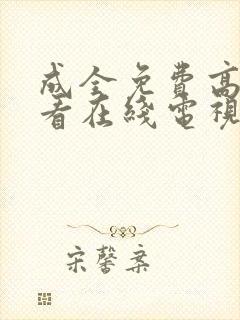 成全免费高
看在线電視
宋馨案